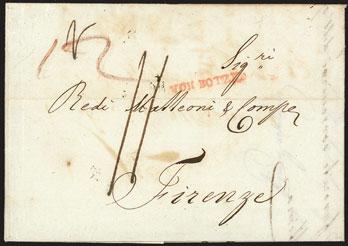 12
Sig.ri
VON BOTZEN
Redi Matteoni & Compe
11
Firenze